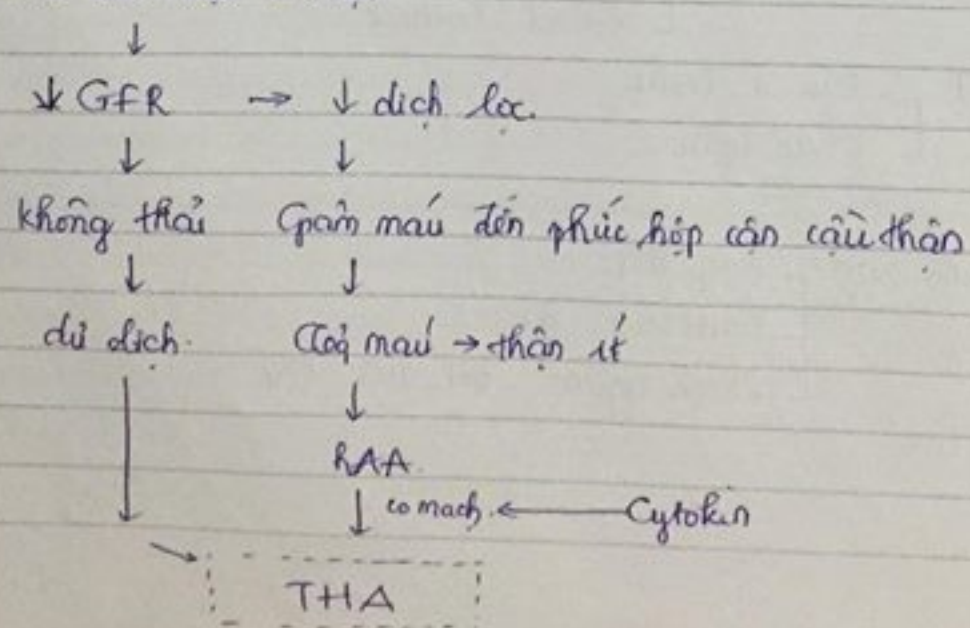 ↓
↓ GFR → ↓ dịch lọc.
↓ ↓
không thải Giảm máu đến phức hợp cận cầu thận
↓ ↓
dư dịch. máu → thận ít
↓
RAA.
↓ co mạch. ← Cytokin
THA